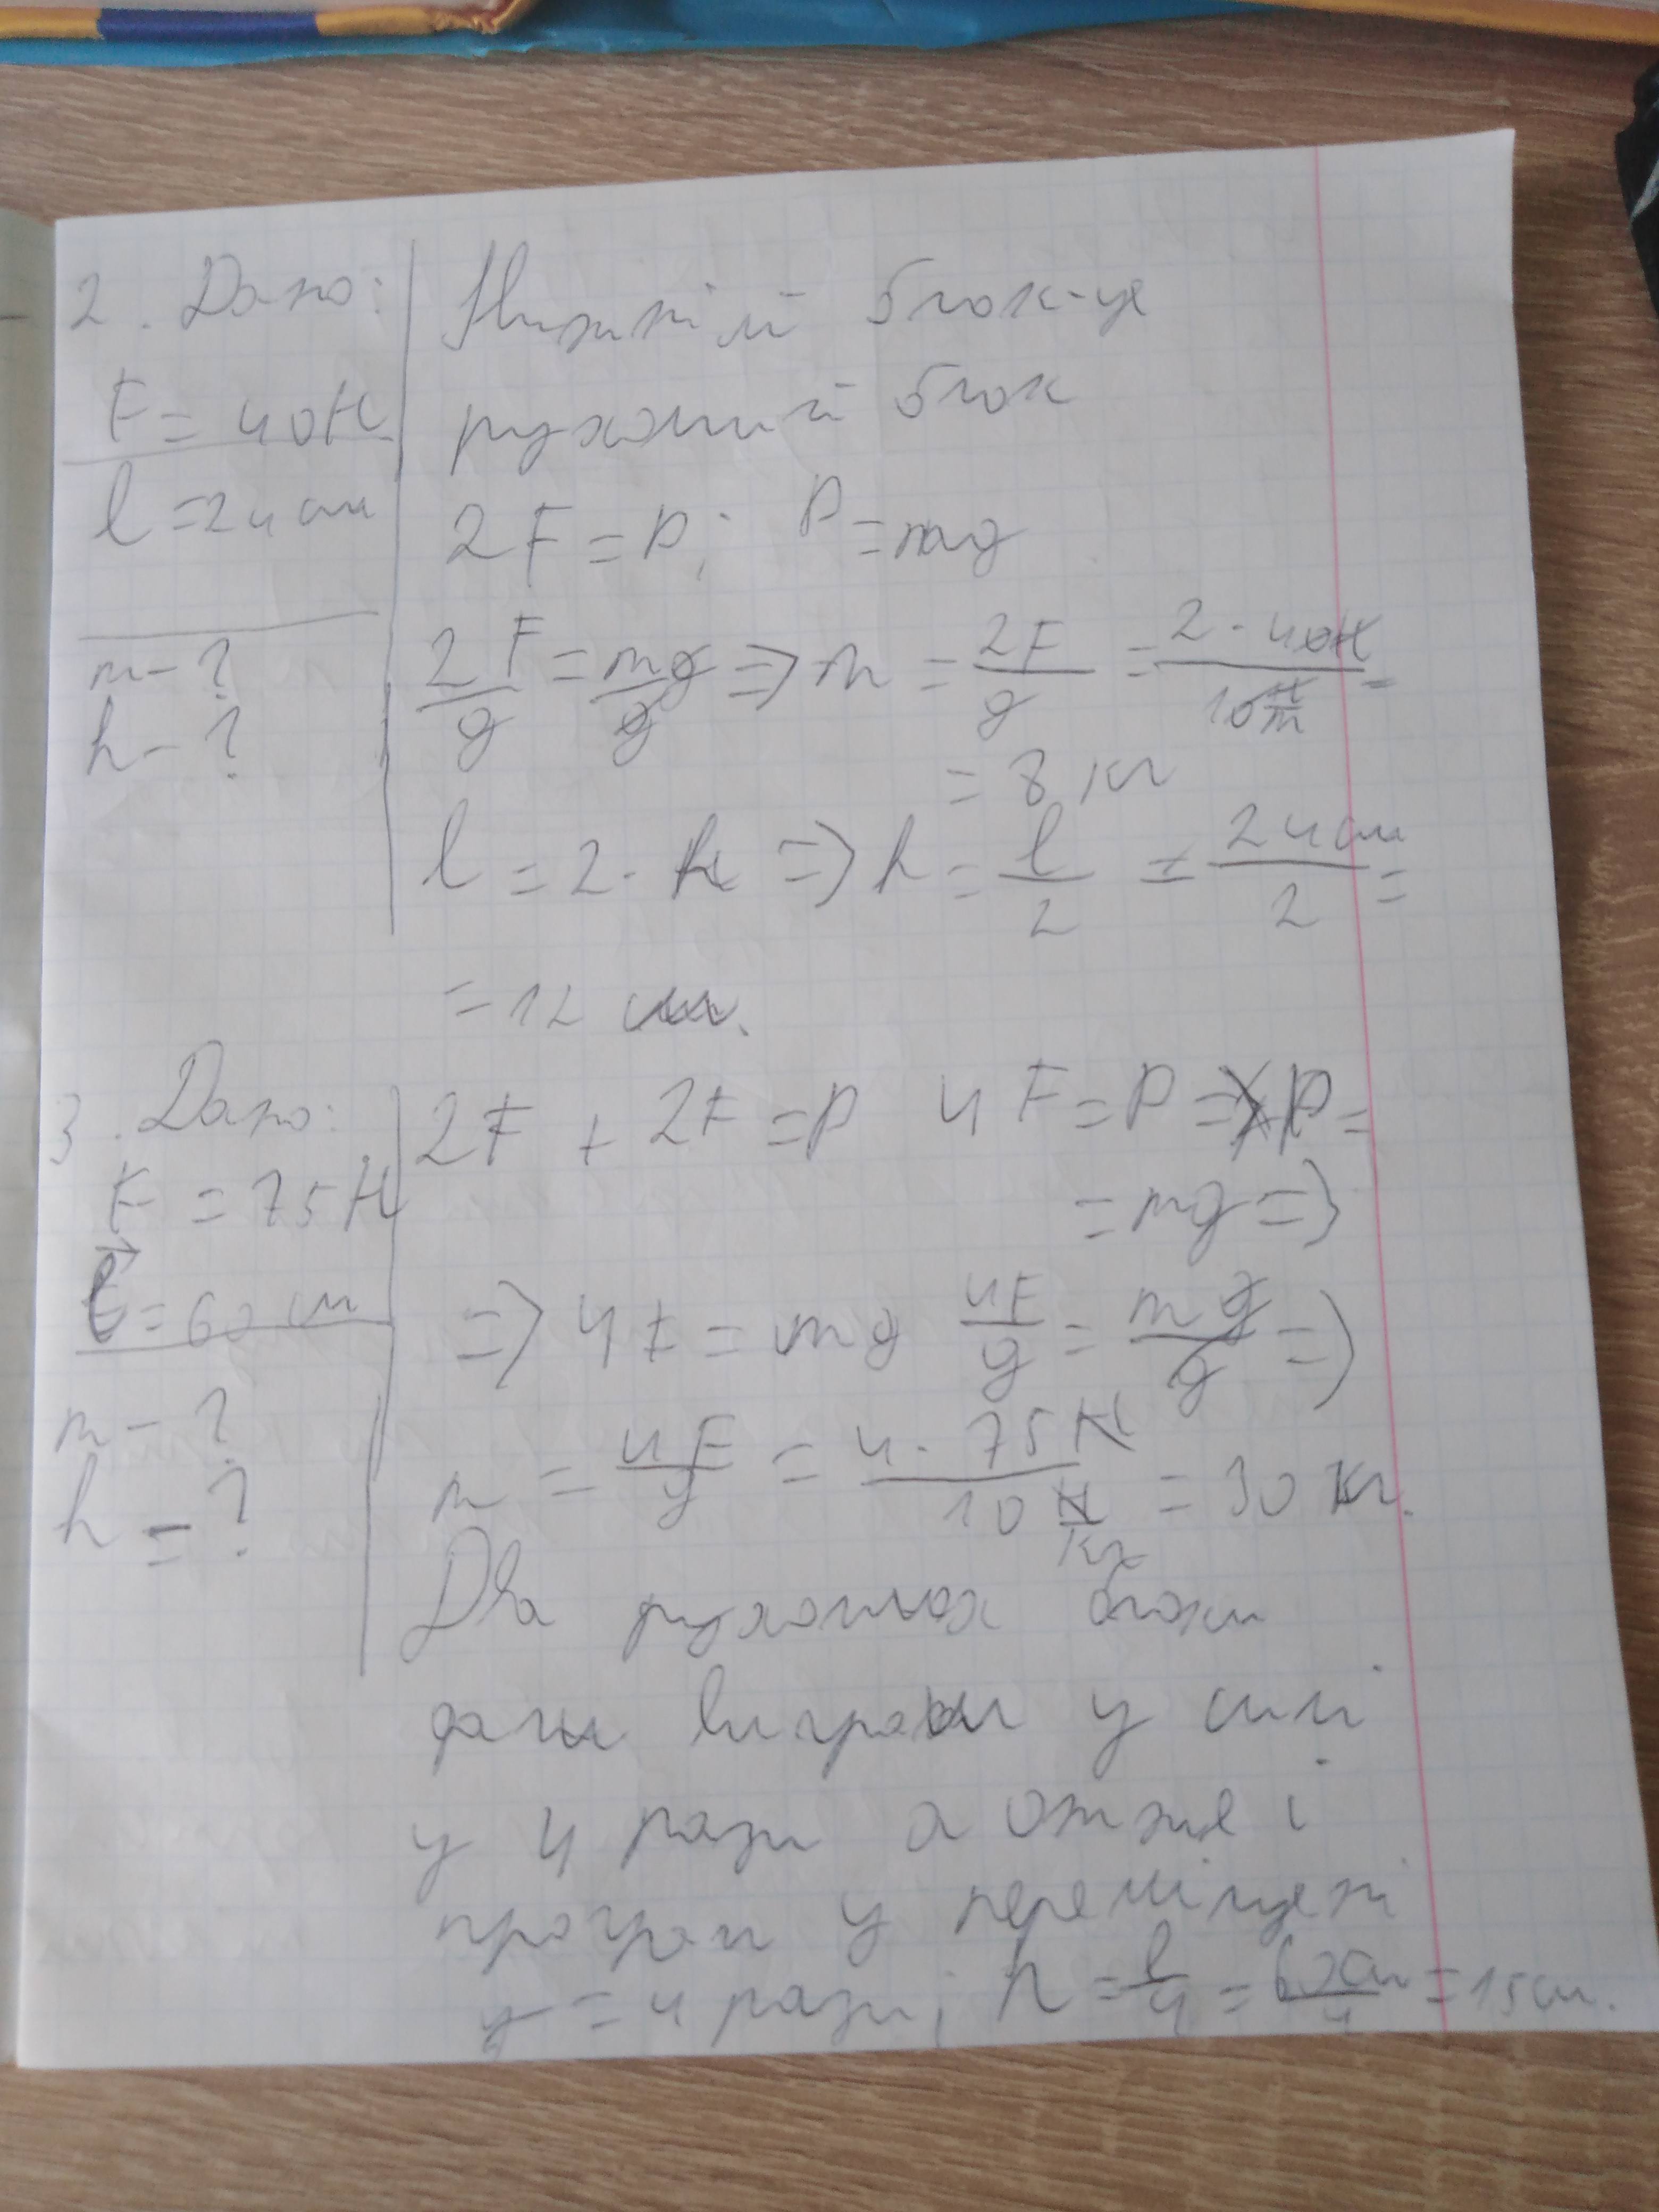 2. Дано:
F = 40Н
l = 24 см
m - ?
h - ?
Нижній блок-це
рухомий блок
2F = P; P = mg
2F/g = mg/g => m = 2F/g = 2 · 40Н/10 Н/m =
= 8 кг
l = 2 · h => h = l/2 = 24 см/2 =
= 12 см.
3. Дано:
F = 75Н
l = 60 см
m - ?
h = ?
2F + 2F = P 4F = P => P =
= mg =>
=> 4F = mg 4F/g = mg/g =>
m = 4F/g = 4 · 75Н/10 Н/кг = 30 кг.
Два рухомих блоки
дали виграш у силі
у 4 рази а отже і
програш у переміщені
у = 4 рази; h = l/4 = 60см/4 = 15см.